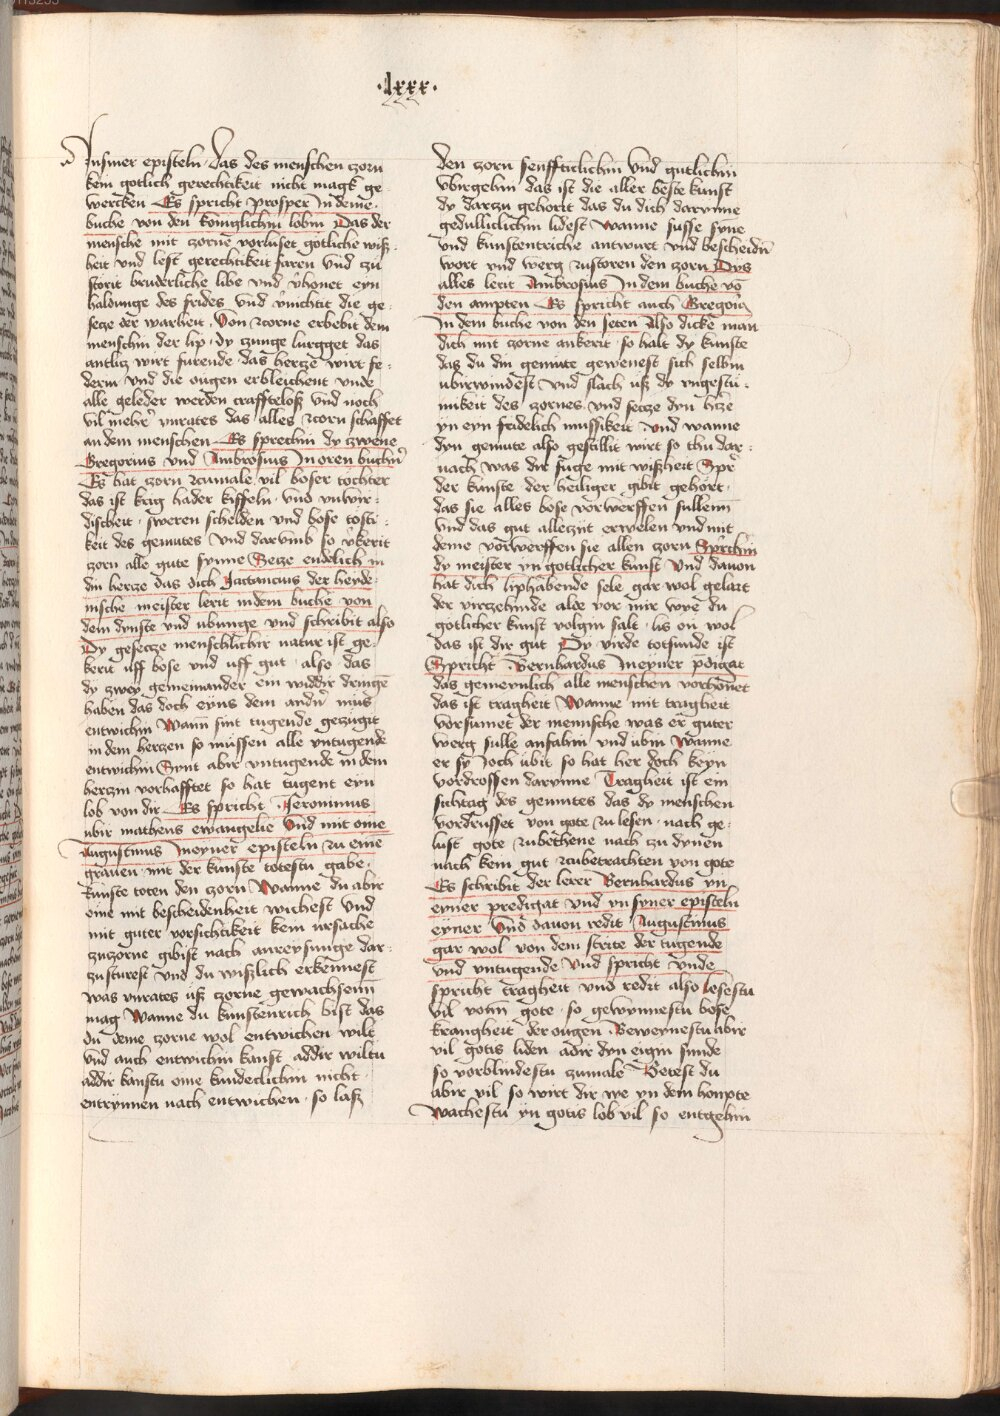 ·lxxx·
In siner episteln · das des menschen zorn
kein gotlich gerechtikeit nicht magk ge
wercken Es spricht prosper In deme
buche von den koniglichin lobin Das der
mensche mit zorne vorluset gotliche wiß-
heit vnd lest gerechtikeit faren vnd zu
storit bruderliche libe vnd vhonet eyn
haldunge des frides vnd vnichtit die ge-
secze der warheit · Von zcorne erbebit dem
menschin der lip · dy czunge lurgget das
antlicz wirt furende · das hercze wirt fe-
derin vnd die ougen erbleichent vnde
alle geleder werden craffteloß vnd noch
vil mehr vnrates das alles zcorn schaffet
an dem menschen Es sprechin dy zwene
Gregorius vnd Ambrosius In oren buchin
Es hat zorn zcumale vil boser tochter
das ist krig hader kiffeln · vnd vnwir-
discheit · sweren schelden vnd bose tosti-
keit des gemutes vnd darvmb so vkerit
zorn alle gute synne Secze endelich in
din hercze das dich Lactancius der heyde-
nische meister lerit in dem buche von
dem dynste vnd ubunge vnd schribit also
Dy gesecze menschlichir nature ist ge-
kerit uff bose vnd uff gut · also · das
dy zwey gemeinander ein widdir dringe
haben das doch eyns dem andir mus
entwichin Wann sint tugende geczugit
in dem herczen so mussen alle vntugende
entwichin Synt abir vntugende in dem
herczin vorhafftet so hat tugent eyn
lob von dir Es spricht Jeronimus
ubir matheus ewangelie Vnd mit ome
Augustinus In eyner episteln zu eime
graven · mit der kunste totestu gabe ·
kunste toten den zorn Wanne du abir
ome mit bescheidenheit wichest vnd
mit guter vorsichtikeit kein ursache
zuzorne gibist nach anreysunge dar-
zu sturest vnd du wißlich erkennest
was vnrates uß zorne gewachsenn
mag Wanne du kunstenrich bist das
du deme zorne wol entwichen wilt
vnd auch entwichin kanst addir wiltu
addir kanstu ome kindeclichin nicht ·
entrynnen nach entwichen · so laß
den zorn senffticlichin vnd gutlichin
vbirgehin das ist die aller beste kunst
dy darzu gehorit das du dich darynne
gedulliclichin lidest Wanne susse syne
vnd kunstentriche antwurt vnd bescheidn
wort vnd werg zustoren den zorn Dys
alles lerit Ambrosius In dem buche vo
den ampten Es spricht auch Gregorius
In dem buche von den seten Also dicke man
dich mit zorne ankerit · so halt dy kunste
das du din gemute gewenest sich selbin
ubirwindest vnd slach uß dy vngestu-
mikeit des zornes vnd secze dyn hcze
yn eyn fridelich mussikeit vnd wanne
dyn gemute also gestillit wirt so thu dar-
nach was dir fuge mit wißheit Spr
der kunste der heiliger gibit gehort ·
das sie alles bose vorwerffen sullenn
vnd das gut alleczijt erwelen vnd mit
deme vorwerffen sie allen zorn Sprchin
dy meister yn gotlicher kunst vnd davon
hat dich liphabende sele gar wol gelart
der virczehinde alde vor mir wye du
gotlicher kunst volgin salt · lis on wol
das ist dir gut Dy virde totsunde ist
Spricht Bernhardus In eyner p̄digat
das gemeynlich alle menschen vorhonet
das ist tragheit Wanne mit tragheit
vorsumet der mennsche was er guter
werg sulle anfahin vnd ubin Wanne
er sy joch ubit so hat her doch keyn
vordrossen darynne Tragheit ist ein
sichtag des gemutes das dy menschen
vordrusset von gote zu lesen · nach ge-
lust gote zubethene nach zu dynen
nach kein gut zcubetrachten von gote
Es schribit der lerer Bernhardus yn
eyner predigat vnd yn syner episteln
eyner Vnd davon redit Augustinus
gar wol von dem strite der tugende
vnd vntugende vnd spricht vnde
spricht tragheit vnd redit also lesestu
vil vonn gote · so gewynnestu bose
krangheit der ougen · Beweynestu abir
vil gotis liden adir dyn eigin sunde
so vorblindestu zumale Betest du
abir vil so wirt dir we yn dem houpte
Wachestu yn gotis lob vil so entgehin